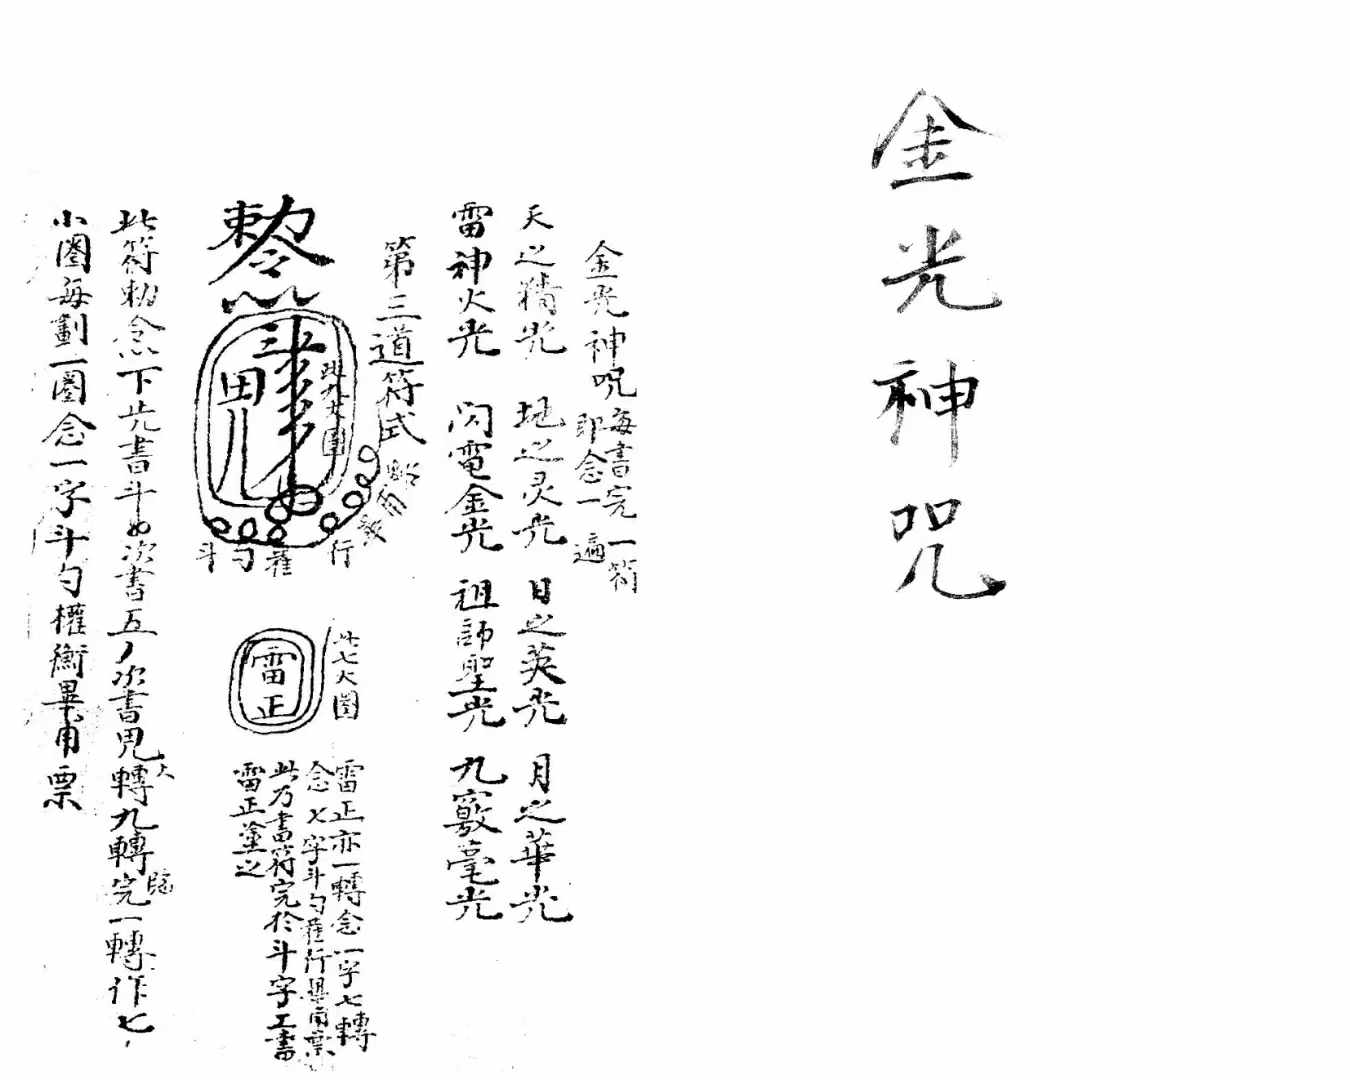 金光神咒
金光神咒
每書完一符
即念一遍
天之精光 地之灵光 日之英光 月之華光
雷神火光 閃電金光 祖師聖光 九竅毫光
第三道符式
敕令
此九大圈
田
斗勺權行
畢甫票
此七大圈
雷正
雷正亦一轉念一字七轉
念七字斗勺權行畢甫票
此乃書符完於斗字工書
雷正塗之
此符勅令下先書斗 次書五 次書 轉九轉完一轉作七
大
臨
小圈每劃一圈念一字斗勺權衡畢甫票